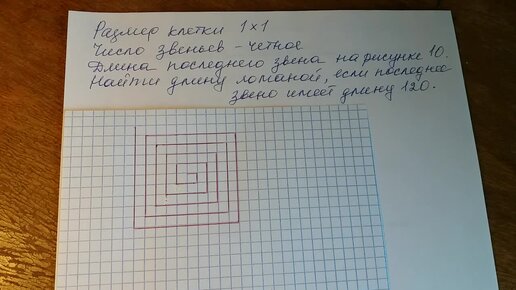 Размер клетки 1×1
Число звеньев - четное
Длина последнего звена на рисунке 10.
Найти длину ломаной, если последнее
звено имеет длину 120.